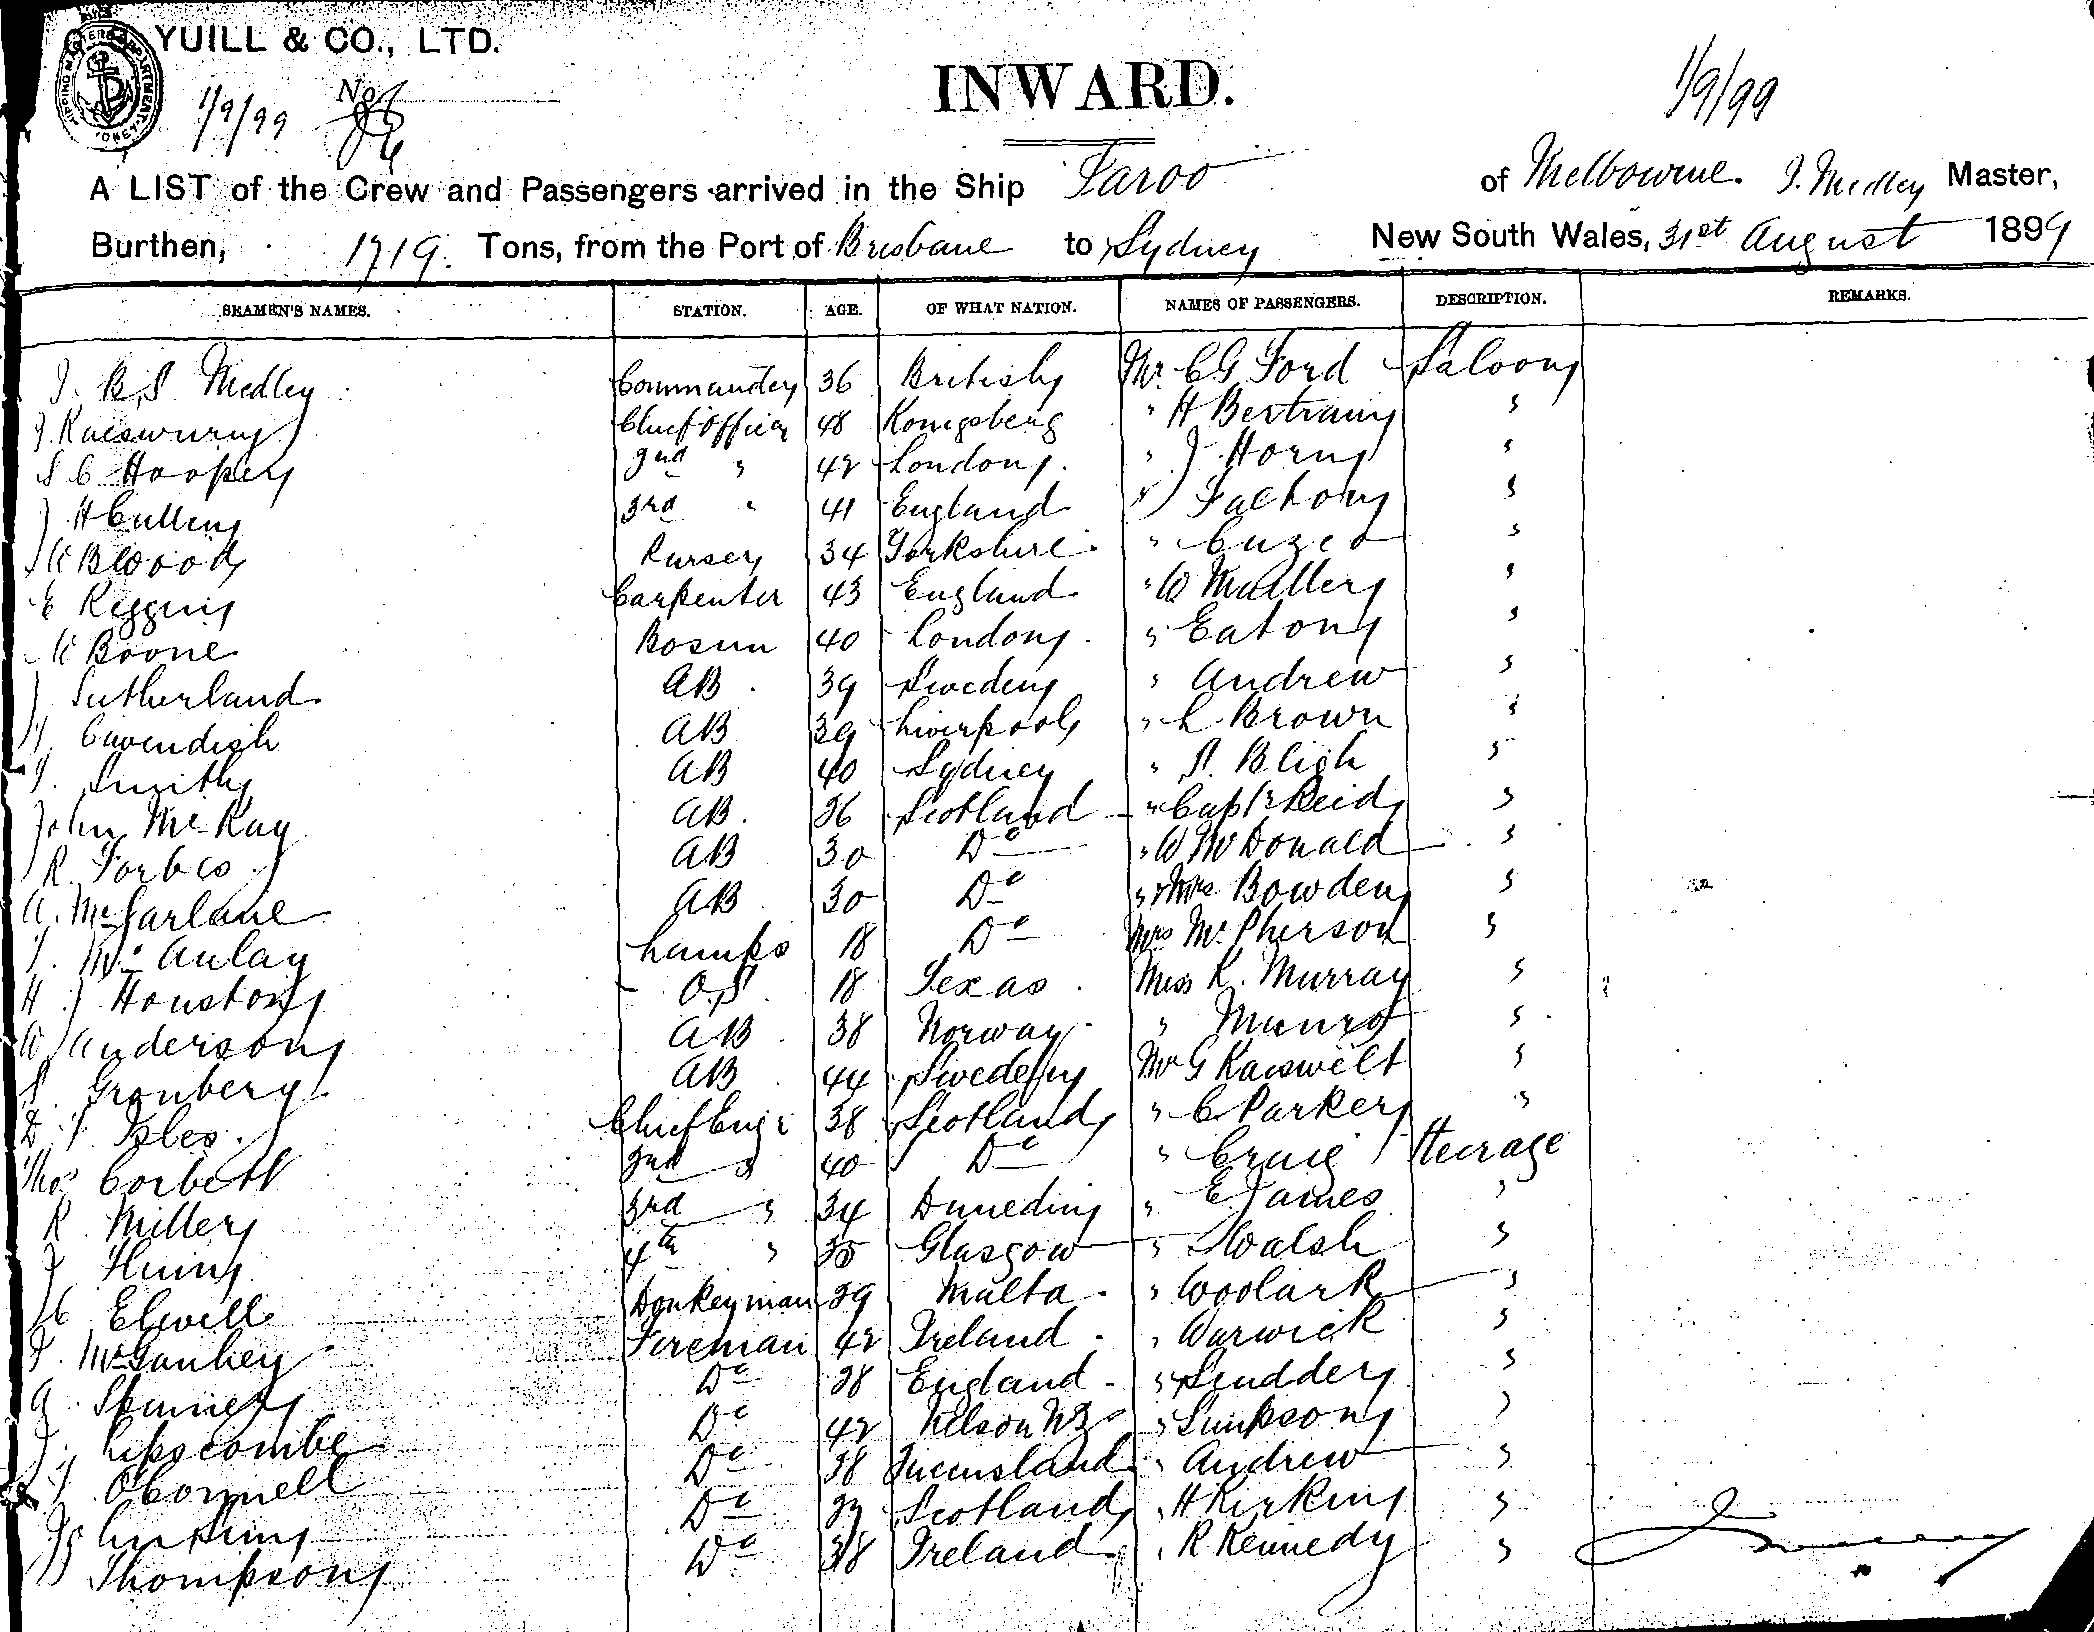 YUILL & CO., LTD.
1/9/99 No.
INWARD.
1/9/99
A LIST of the Crew and Passengers arrived in the Ship Taroo of Melbourne. J. Medley Master,
Burthen, 1719. Tons, from the Port of Brisbane to Sydney New South Wales, 31st August 1899
SEAMEN'S NAMES. STATION. AGE. OF WHAT NATION. NAMES OF PASSENGERS. DESCRIPTION. REMARKS.
J. B. S. Medley Commander 36 British Mr. C G Ford Saloon
J. Chief Officer 48 Konigsberg " H Bertram "
S C Hooper 2nd " 42 London " J Horn "
J H Cullen 3rd " 41 England " J "
W B Wood Purser 34 Yorkshire " Cuzco "
E Riggin Carpenter 43 England " W Muller "
W Boone Bosun 40 London " Eaton "
J Sutherland AB 39 Sweden " Andrew "
H. Cavendish AB 39 Liverpool " L Brown "
J. Smith AB 40 Sydney " A. Bligh "
John McKay AB. 36 Scotland " Capt Reid "
R. Forbes AB 30 Do " W McDonald "
A. McFarlane AB 30 Do " & Mrs Bowden "
J. McAulay Lamps 18 Do Mrs McPherson "
H J Houston O.S 18 Texas Miss K. Murray "
W Anderson AB 38 Norway " Munro "
S. Gronberg AB 44 Sweden Mr G "
D J. Isles Chief Engr 38 Scotland " C Parker "
Thos Corbett 2nd " 40 Do " Craig Steerage
R Miller 3rd " 34 Dunedin " E James "
J 4th " 35 Glasgow " Walsh "
C Elwell Donkeyman 29 Malta " Woolark "
F. McGauhey Fireman 42 Ireland " Warwick "
A Do 28 England " Scudder "
J. Lipscombe Do 42 Nelson NZ " Simpson "
J O'Connell Do 38 Queensland " Andrew "
Do Scotland " H Kirkin "
Thompson Do 38 Ireland " R Kennedy "